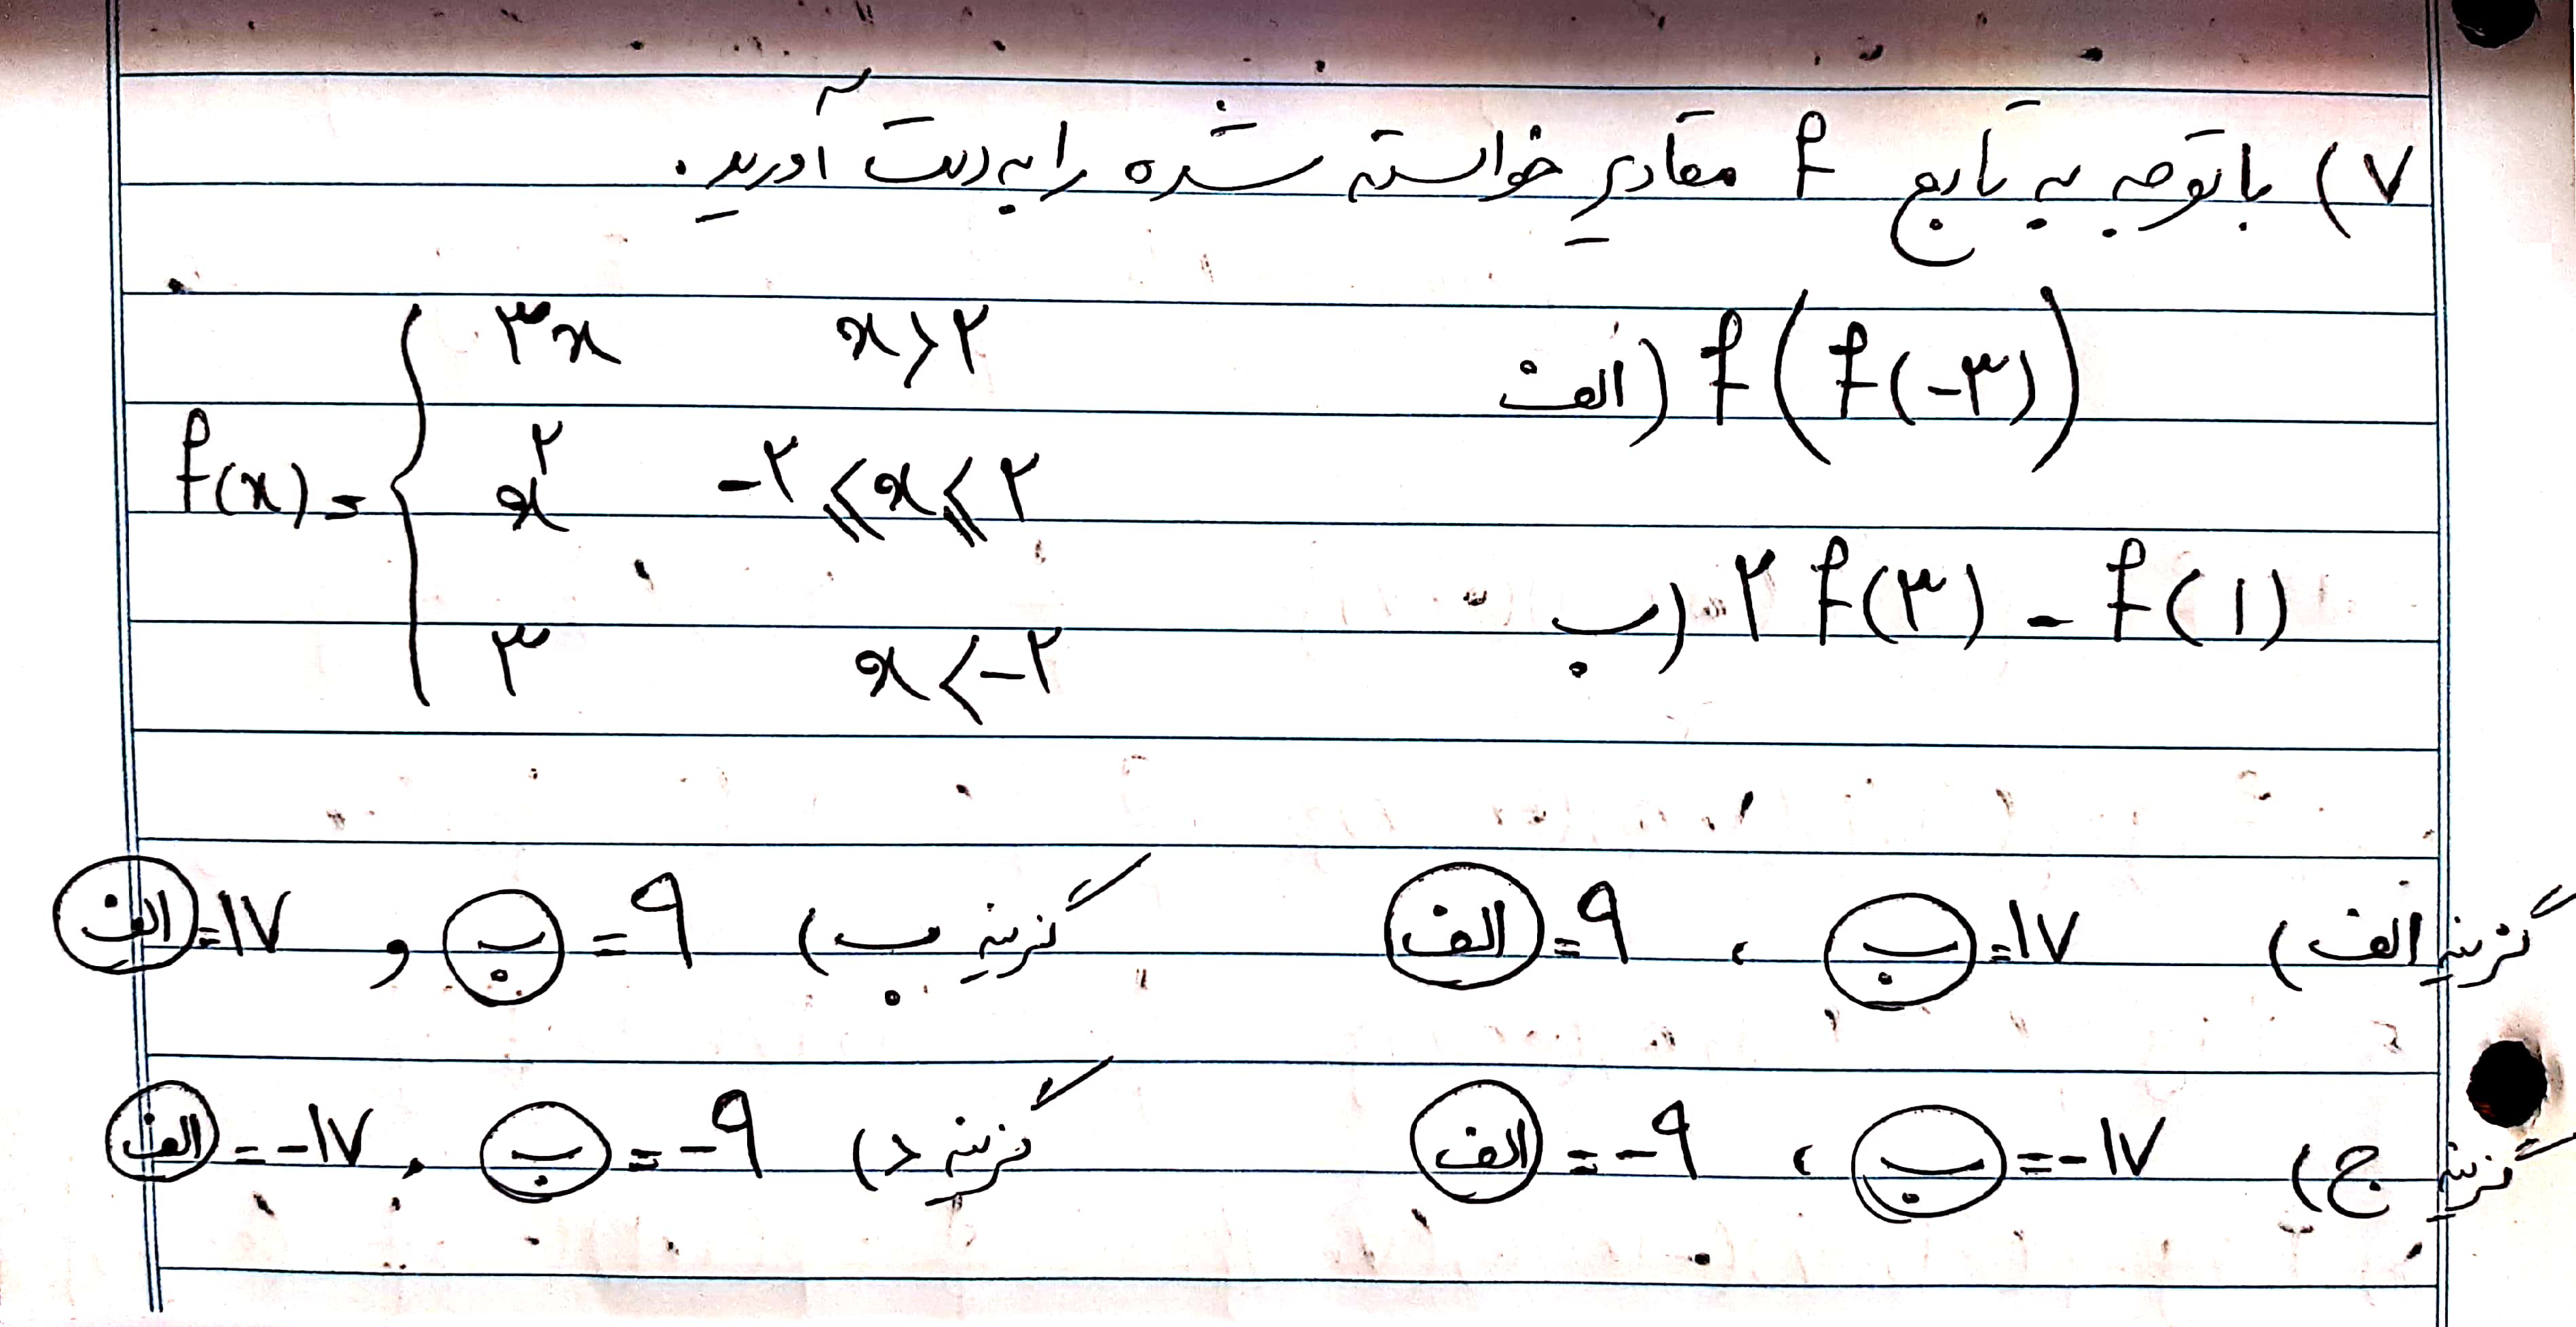 ۷) با توجه به تابع f مقادیر خواسته شده را به دست آورید.
f(x) = { ۳x x>۲
x^۲ -۲≤x≤۲
۳ x<-۲
الف) f(f(-۳))
ب) ۲f(۳) - f(۱)
گزینه الف) ب = ۱۷ ، الف = ۹
گزینه ب) ب = ۹ و الف = ۱۷
گزینه ج) ب = -۱۷ ، الف = -۹
گزینه د) ب = -۹ ، الف = -۱۷